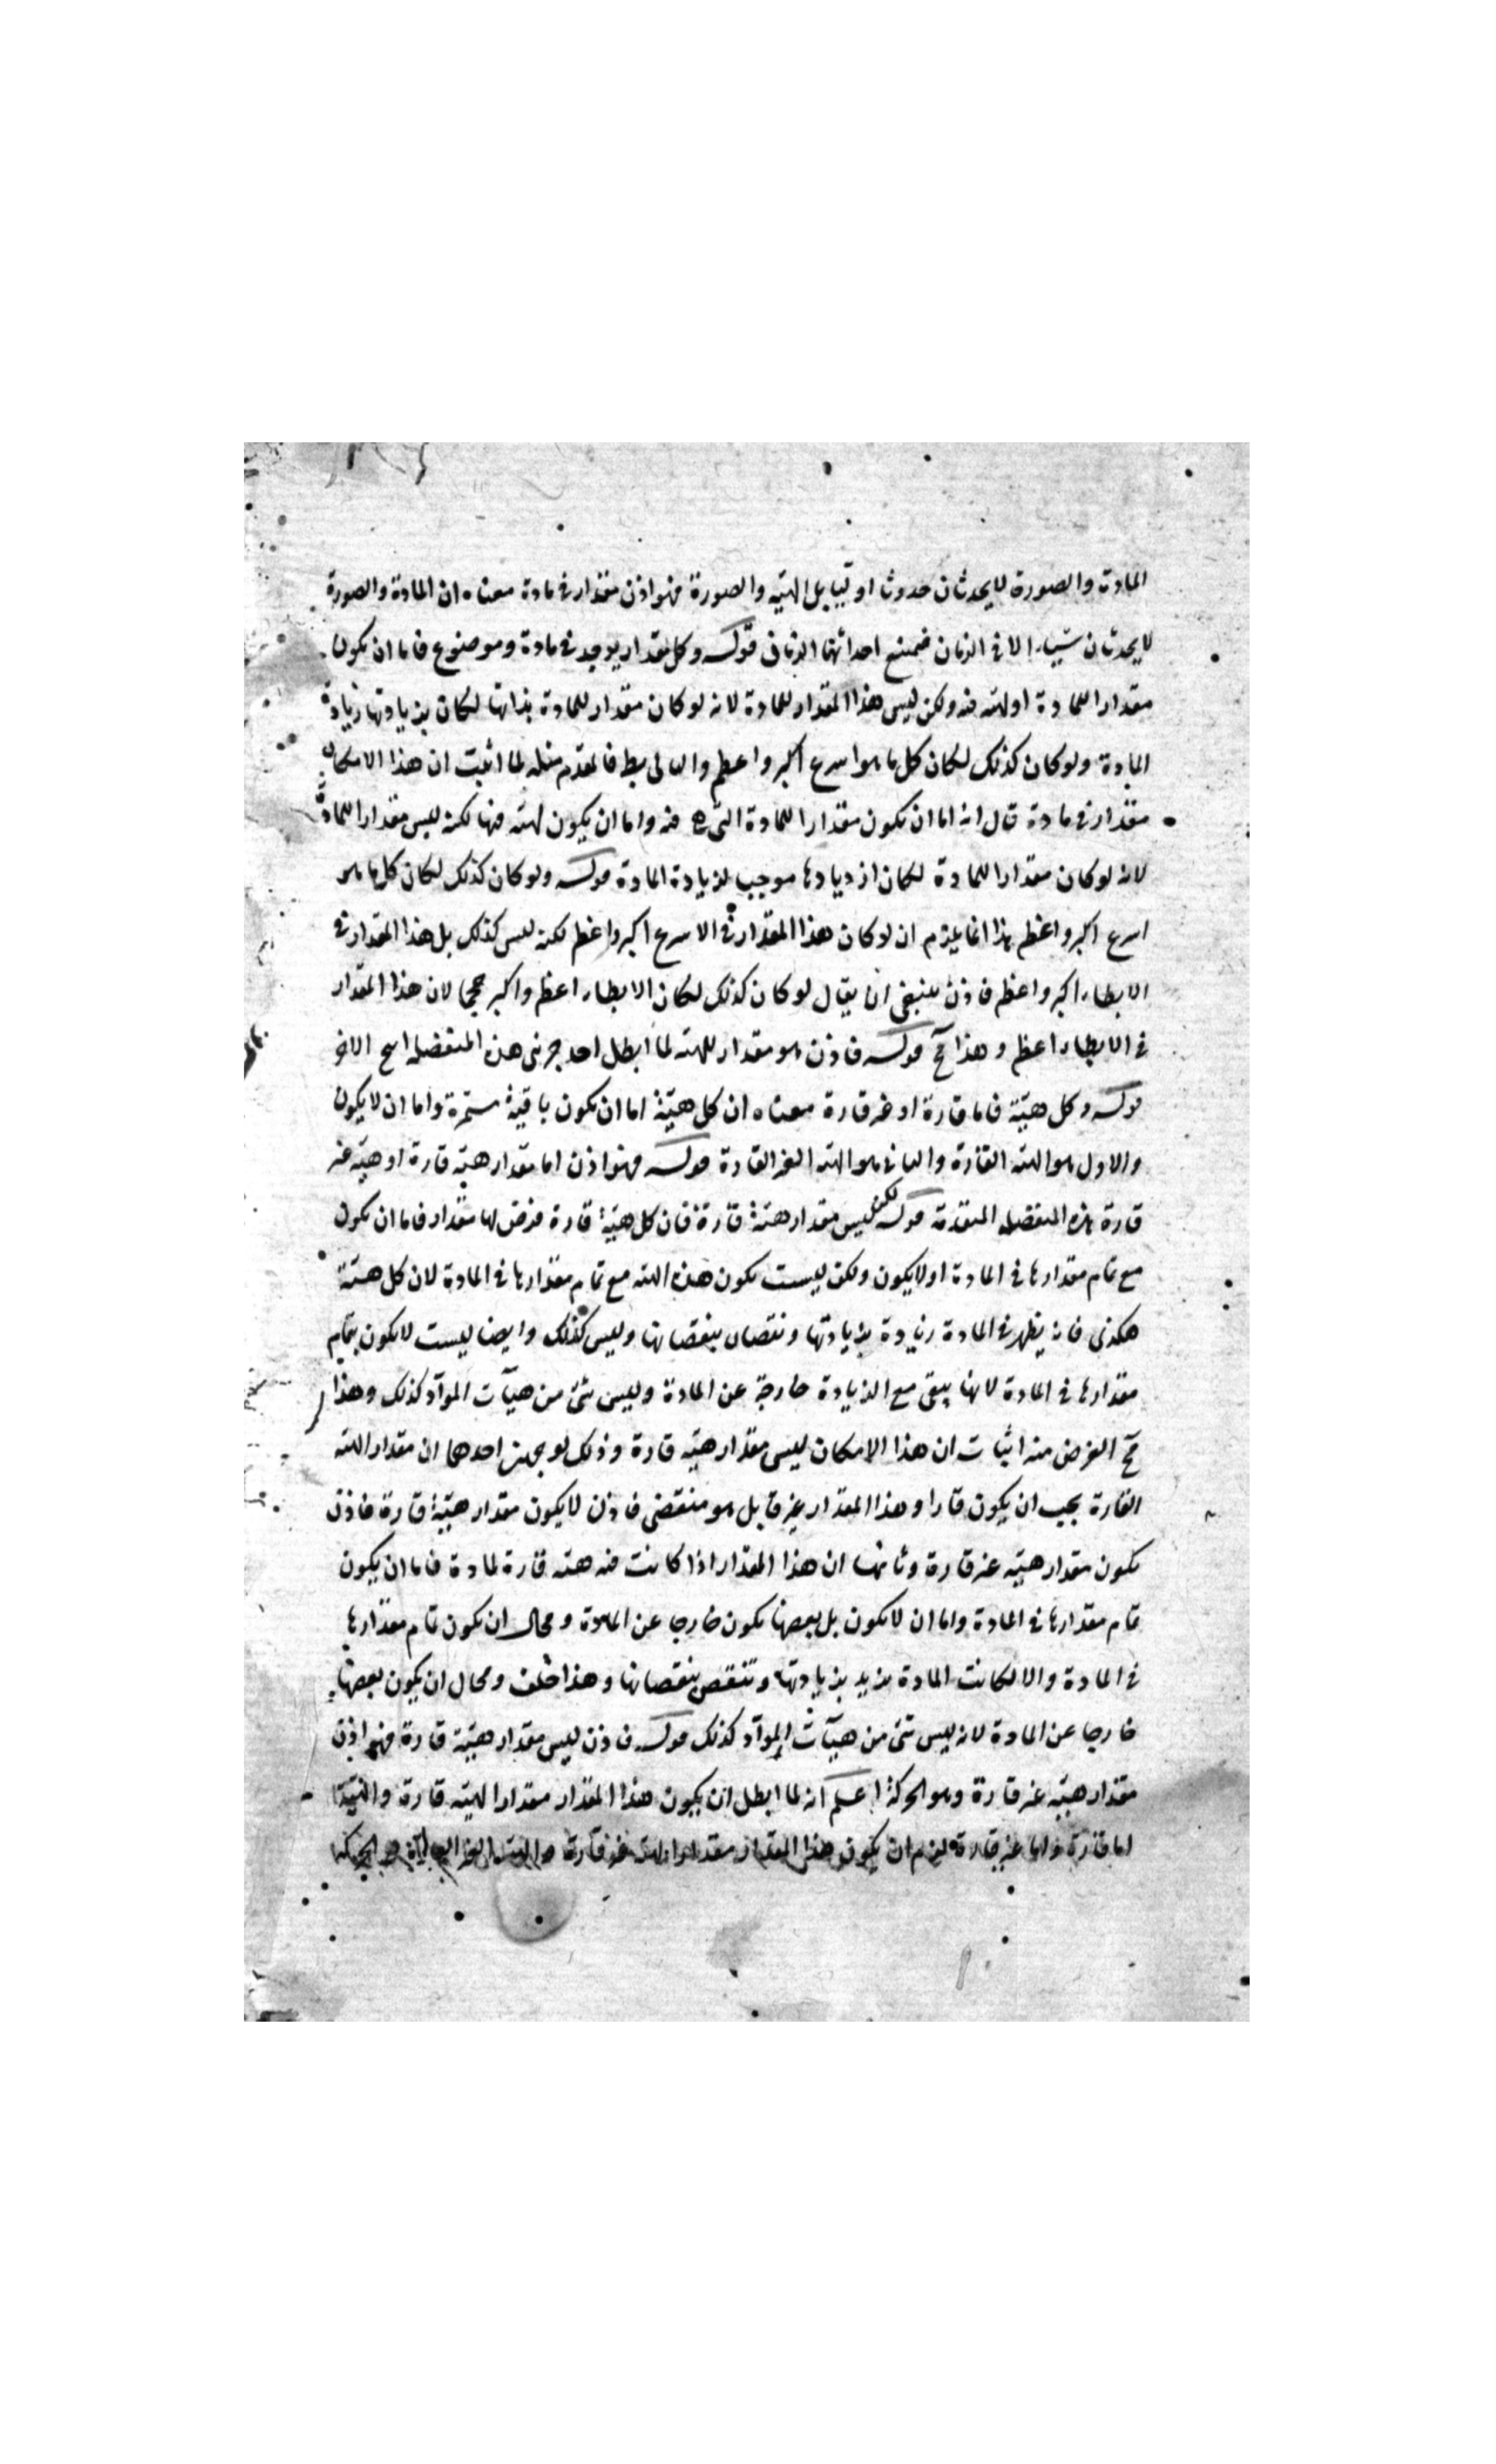 المادة والصورة لا يحدثان حدوثا اوليا بل الهيّه والصورة فهو اذن مقدار فى مادة معناه ان المادة والصورة
لا يحدثان شيباء الا فى الزمان فيمتنع احداثهما الزمان قوله وكل مقدار يوجد فى مادة وموضوع فاما ان يكون
مقدارا للمادة او لهيّه فيه ولكن ليس هذا المقدار للمادة لانه لو كان مقدار للمادة بذاتها لكان بزيادتها زيادة
المادة ولو كان كذلك لكان كل ما هو اسرع اكبر واعظم والتالى بط فالمقدم مثله لما اثبت ان هذا الامكان
مقدار فى مادة قال انه اما ان يكون مقدارا للمادة التى هى فيه واما ان يكون لهيّه فيها لكنه ليس مقدارا للمادة
لانه لو كان مقدارا للمادة لكان ازديادها موجب لزيادة المادة قوله ولو كان كذلك لكان كل ما هو
اسرع اكبر واعظم هذا انما يلزم ان لو كان هذا المقدار فى الاسرع اكبر واعظم لكنه ليس كذلك بل هذا المقدار فى
الابطاء اكبر واعظم فاذن ينبغى ان يقال لو كان كذلك لكان الابطاء اعظم واكبر حجما لان هذا المقدار
فى الابطاء اعظم وهذا مح قوله فاذن هو مقدار للهيّه لما ابطل احد جزئى هذه المنفصله انتج الاخر
قوله وكل هيّة فاما قارة او غير قارة معناه ان كل هيّة اما ان يكون باقية مستمرة واما ان لا يكون
والاول هو الهيّه القارة والثانى هو الهيّه الغير القارة قوله فهو اذن اما مقدار هيّه قارة او هيّه غير
قارة هذه المنفصله المتقدمة قوله لكن ليس مقدار هيّة قارة فان كل هيّة قارة فرض لها مقدار فاما ان يكون
مع تمام مقدارها فى المادة او لا يكون ولكن ليست يكون هذه الهيّه مع تمام مقدارها فى المادة لان كل هيّة
هكذى فانه يظهر فى المادة زيادة بزيادتها ونقصان بنقصانها وليس كذلك وايضا ليست لا يكون بتمام
مقدارها فى المادة لانها يبقى مع الزيادة خارجة عن المادة وليس شئ من هيآت الموآد كذلك وهذا
مح الغرض منه اثبات ان هذا الامكان ليس مقدار هيّه قارة وذلك لوجهين احدهما ان مقدار الهيّه
القارة يجب ان يكون قارا وهذا المقدار غير قار بل هو منقضى فاذن لا يكون مقدار هيّة قارة فاذن
يكون مقدار هيّه غير قارة وثانيهما ان هذا المقدار اذا كانت فيه هيّه قارة لمادة فاما ان يكون
تمام مقدارها فى المادة واما ان لا يكون بل بعضها يكون خارجا عن المادة ومحال ان يكون تمام مقدارها
فى المادة والا لكانت المادة يزيد بزيادتها وتنقص بنقصانها وهذا خلف ومحال ان يكون بعضها
خارجا عن المادة لانه ليس شئ من هيآت الموآد كذلك قوله فاذن ليس مقدار هيّة قارة فهو اذن
مقدار هيّه غير قارة وهو الحركة اعلم انه لما ابطل ان يكون هذا المقدار مقدارا لهيّه قارة والهيّة
اما قارة واما غير قارة لزم ان يكون هذا المقدار مقدارا لهيّه غير قارة والهيّه الغير القارة هو الحركة